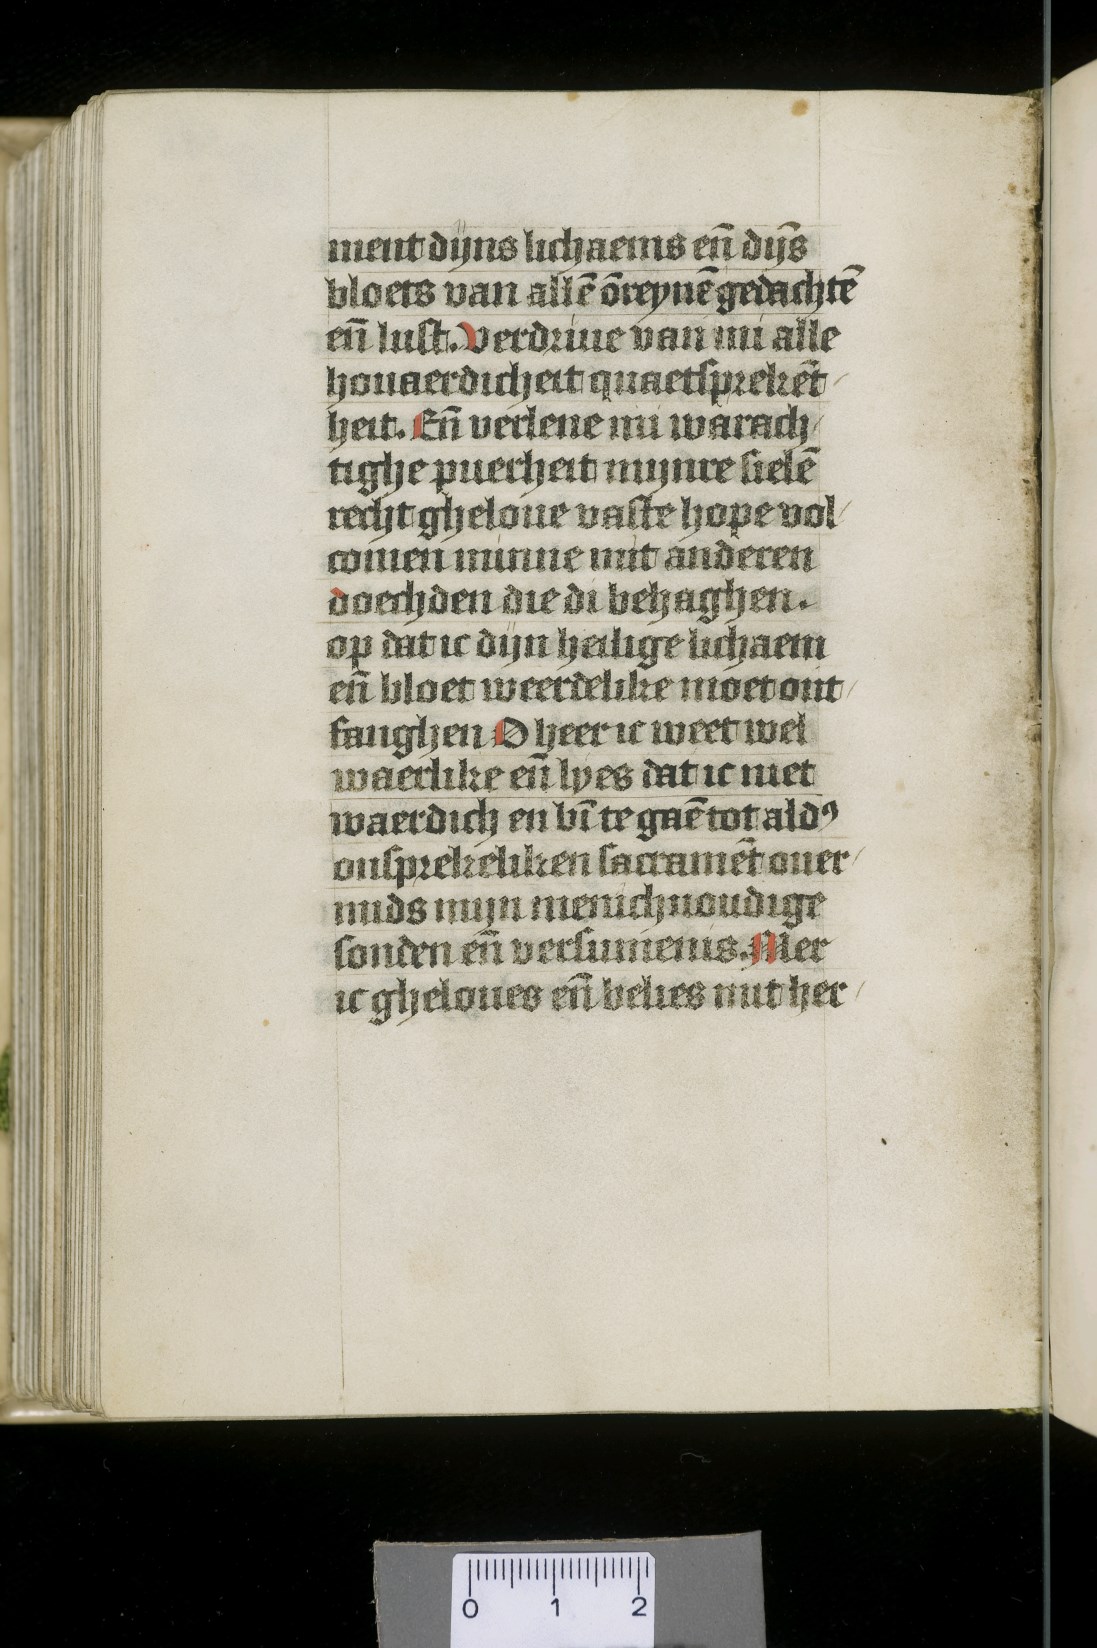 ment dijns lichaems en̄ dijs̄
bloets van allē ōreynē gedachtē
en̄ lust. Verdriue van mi alle
houaerdicheit quaetsprekēt
heit. En̄ verlene mi warach
tighe puerheit mijnre sielē
recht gheloue vaste hope vol
comen minne mit anderen
doechden die di behaghen.
op dat ic dijn heilige lichaem
en̄ bloet weerdelike moet ont
fanghen O heer ic weet wel
waerlike en̄ lyes dat ic niet
waerdich en bī te gaē tot aldꝰ
onsprekeliken sacramēt ouer
mids mijn menichuoudige
sonden en̄ versumenis. Mer
ic gheloues en̄ belies mit her
0 1 2